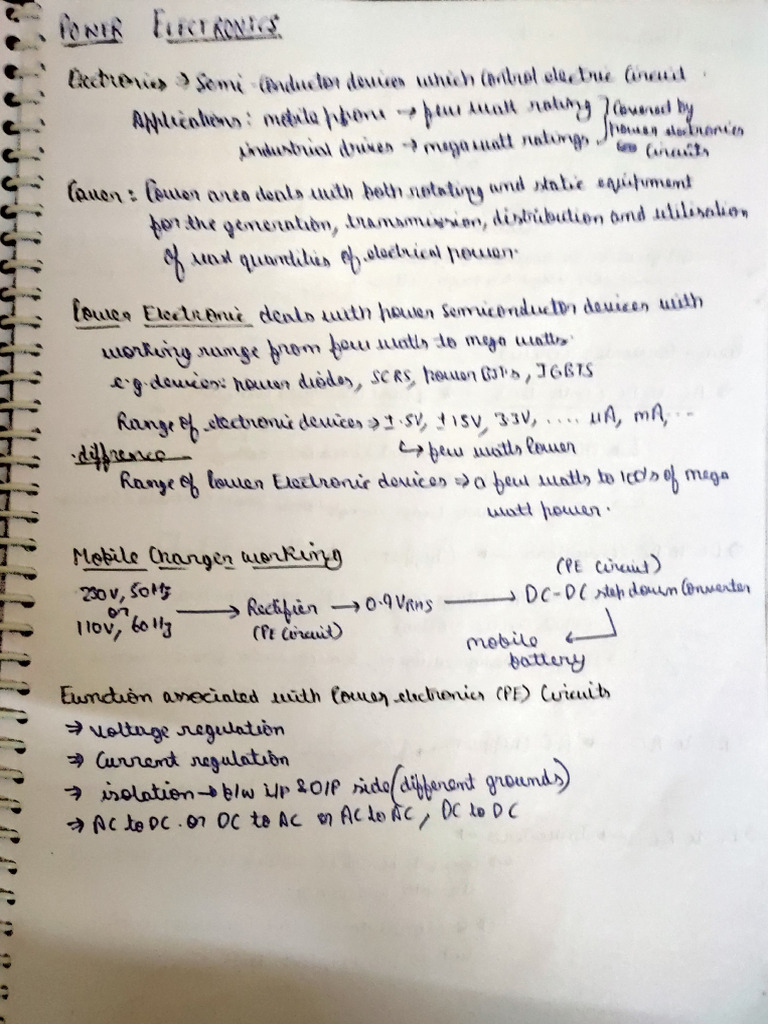 POWER ELECTRONICS
Electronics → Semi-Conductor devices which control electric Circuit.
Applications: mobile phone → few watt rating } Covered by
industrial drives → megawatt ratings power electronics
Circuits
Power: Power area deals with both rotating and static equipment
for the generation, transmission, distribution and utilisation
of vast quantities of electrical power.
Power Electronic deals with power semiconductor devices with
working range from few watts to mega watts.
e.g. devices: power diodes, SCRS, power BJTs, IGBTS
Range of electronic devices ⇒ ± 5V, ± 15V, 33V, .... μA, mA, ...
↳ few watts power
difference
Range of Power Electronic devices ⇒ a few watts to 100's of mega
watt power.
Mobile Charger working
(PE Circuit)
230V, 50Hz
or → Rectifier → 0.9 VRMS → DC-DC step down converter
110V, 60Hz (PE Circuit)
mobile ←
battery
Function associated with Power electronics (PE) Circuits
⇒ voltage regulation
⇒ Current regulation
⇒ isolation → b/w i/p & O/P side (different grounds)
⇒ AC to DC or DC to AC or AC to AC, DC to DC